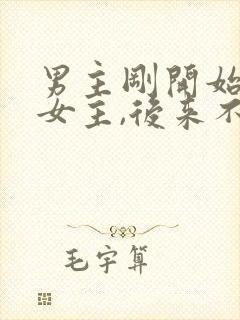 男主剛開始
女主,後來不
毛宇算